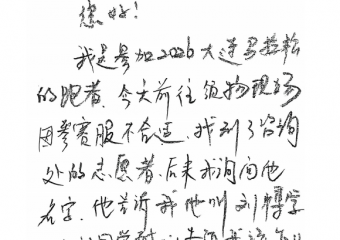 您好！
我是参加2026大连马拉松
的跑者，今天前往领物现场
因参赛服不合适，我到了咨询
处的志愿者，后来我询问他
名字，他告诉我他叫刘博学